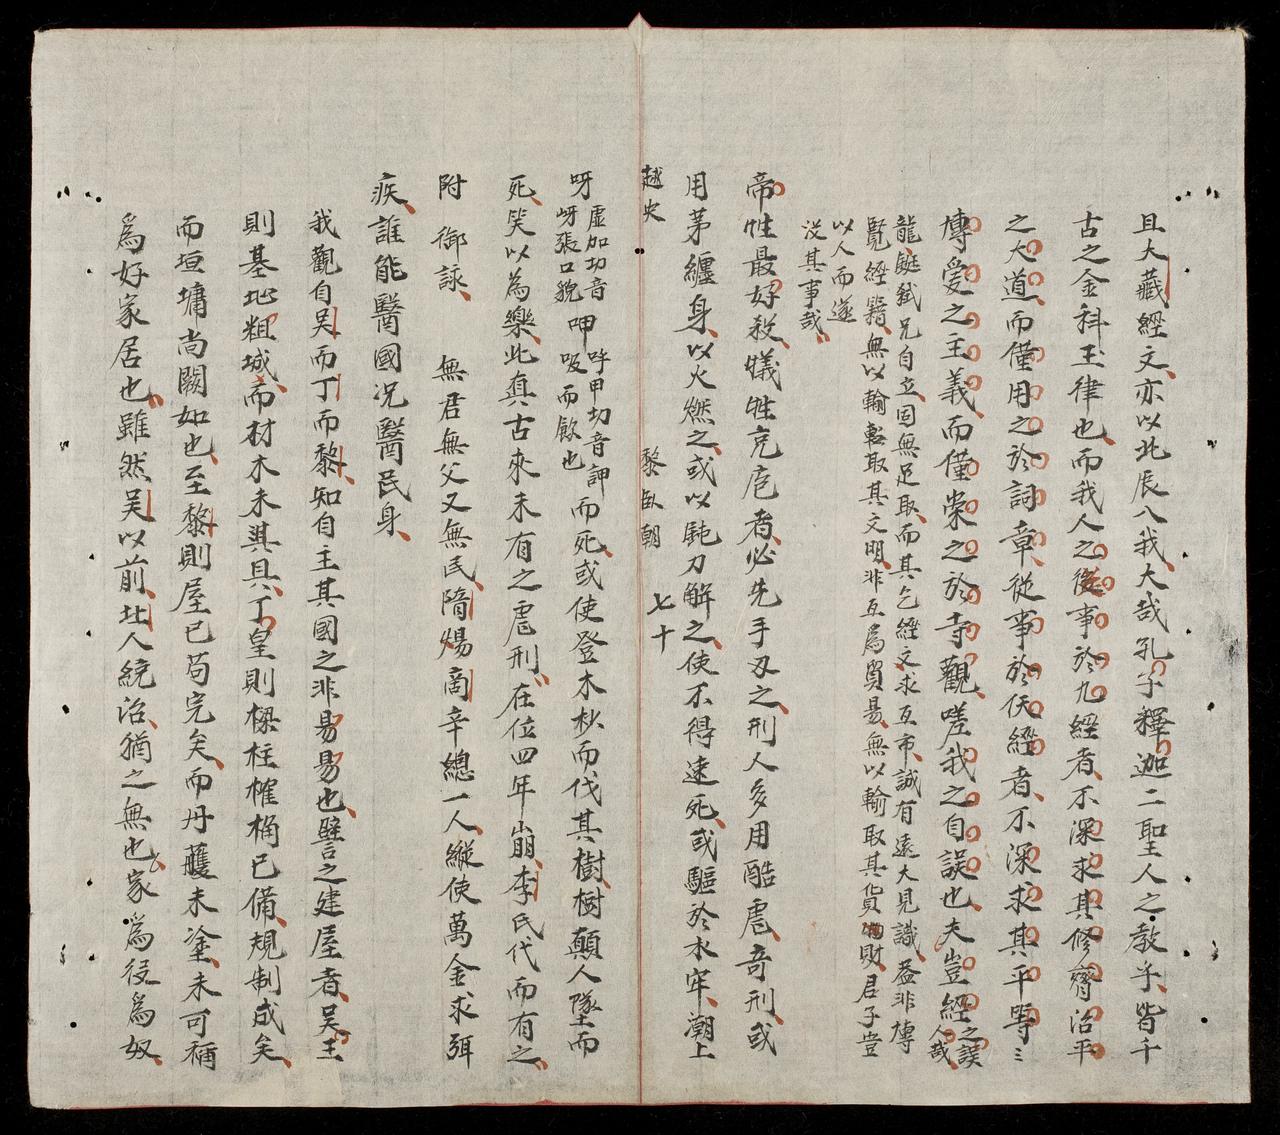 且大藏經文亦以北辰八我大哉孔子釋迦二聖人之教乎皆千
古之金科玉律也而我人之從事於九經者不深求其修齊治平
之大道而僅用之於詞章從事於佛經者不深求其平等ミ
博愛之主義而僅崇之於寺觀嗟我之自誤也夫豈經之誤
人哉
龍鋌弑兄自立固無足取而其乞經文求互市誠有遠大見識益非博
覽經籍無以輸較取其文明非互爲貿易無以輸取其貨物財君子豈
以人而遂
沒其事哉
帝性最好殺犧牲充庖者必先手刃之刑人多用酷虐奇刑或
用茅纏身以火燃之或以鈍刀解之使不得速死或驅於水牢潮上
越史 黎臥朝 七十
呀虛加切音呀張口貌呷呼甲切音岬吸而飲也而死或使登木杪而伐其樹樹顛人墜而
死笑以為樂此真古來未有之虐刑在位四年崩李氏代而有之
附 御詠 無君無父又無民隋煬商辛總一人縱使萬金求弭
疾誰能醫國況醫民身
我觀自吳而丁而黎知自主其國之非易易也譬之建屋者吳王
則基址粗城而材木未具丁皇則樑柱榷桷已備規制成矣
而垣墉尚闕如也至黎則屋已苟完矣而丹雘未塗未可稱
爲好家居也雖然吳以前北人統治猶之無也家爲役爲奴